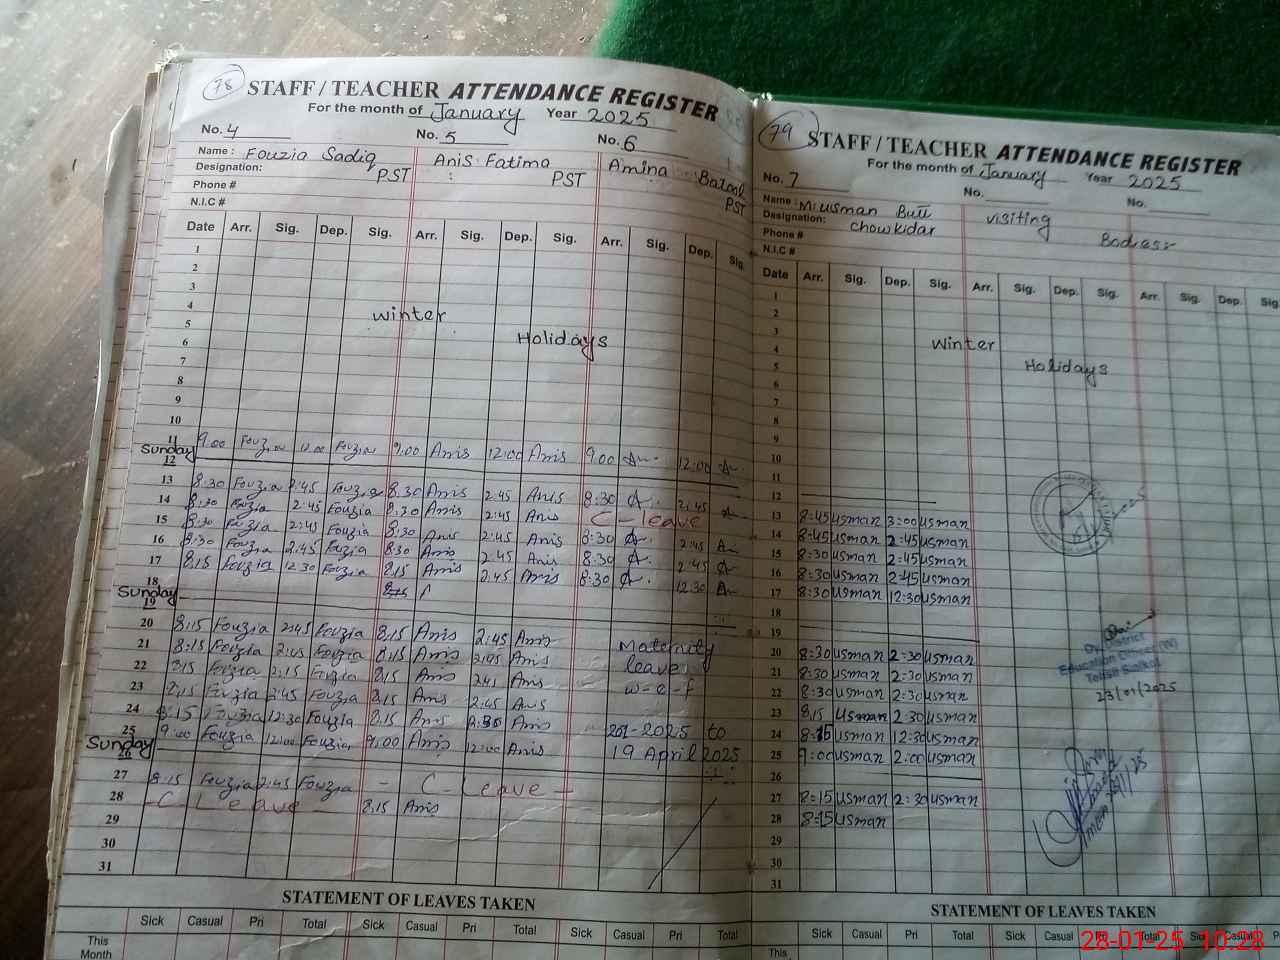 78
STAFF / TEACHER ATTENDANCE REGISTER
For the month of January Year 2025
No. 4 No. 5 No. 6
Name : Fouzia Sadiq Anis Fatima Amina Batool
Designation: PST : PST PST
Phone #
N.I.C #
Date Arr. Sig. Dep. Sig. Arr. Sig. Dep. Sig. Arr. Sig. Dep. Sig.
1
2
3
4
5 Winter
6 Holidays
7
8
9
10
11 9.00 Fouzia 12.00 Fouzia 9.00 Anis 12:00 Anis 9.00 12:00
Sunday 12
13 8:30 Fouzia 2:45 Fouzia 8.30 Anis 2:45 Anis 8:30 2:45
14 8:30 Fouzia 2:45 Fouzia 8:30 Anis 2:45 Anis C-leave
15 8:30 Fouzia 2:45 Fouzia 8:30 Anis 2:45 Anis 8:30 2:45
16 8:30 Fouzia 2:45 Fouzia 8:30 Anis 2.45 Anis 8:30 2:45
17 8:15 Fouzia 12:30 Fouzia 8.15 Anis 2.45 Anis 8:30 12:30
18
Sunday 19
20 8:15 Fouzia 2:45 Fouzia 8:15 Anis 2:45 Anis Maternity
21 8:15 Fouzia Fouzia 8:15 Anis Anis leave
22 8:15 Fouzia 2:15 Fouzia 8:15 Anis Anis w-e-f
23 8:15 Fouzia 2:45 Fouzia 8:15 Anis 2:45 Anis
24 8:15 Fouzia 12:30 Fouzia 8:15 Anis Anis 2025 to
25 9:00 Fouzia 12:00 Fouzia 9:00 Anis 12:00 Anis 19 April 2025
Sunday 26
27 8:15 Fouzia 2:45 Fouzia - C - Leave -
28 - C - Leave - 8.15 Anis
29
30
31
STATEMENT OF LEAVES TAKEN
Sick Casual Pri Total Sick Casual Pri Total Sick Casual Pri Total
This
Month
79
STAFF / TEACHER ATTENDANCE REGISTER
For the month of January Year 2025
No. 7 No. No.
Name : M.Usman Butt Visiting
Designation: Chowkidar Badies:-
Phone #
N.I.C #
Date Arr. Sig. Dep. Sig. Arr. Sig. Dep. Sig. Arr. Sig. Dep. Sig.
1
2
3
4 Winter
5 Holidays
6
7
8
9
10
11
12
13 8:45 usman 3:00 usman
14 8:45 usman 2:45 usman
15 8:30 usman 2:45 usman
16 8:30 usman 2:45 usman
17 8:30 usman 12:30 usman
18
19
20 8:30 usman 2:30 usman
21 8:30 usman 2:30 usman
22 8:30 usman 2:30 usman
23 8:15 usman 2:30 usman
24 8:15 usman 12:30 usman
25 9:00 usman 2:00 usman
26
27 8:15 usman 2:30 usman
28 8:15 usman
29
30
31
Dy. District
Education Officer (W)
Tehsil Sialkot
23/01/2025
STATEMENT OF LEAVES TAKEN
Sick Casual Pri Total Sick Casual Pri Total Sick Casual
This
28-01-25 10:28